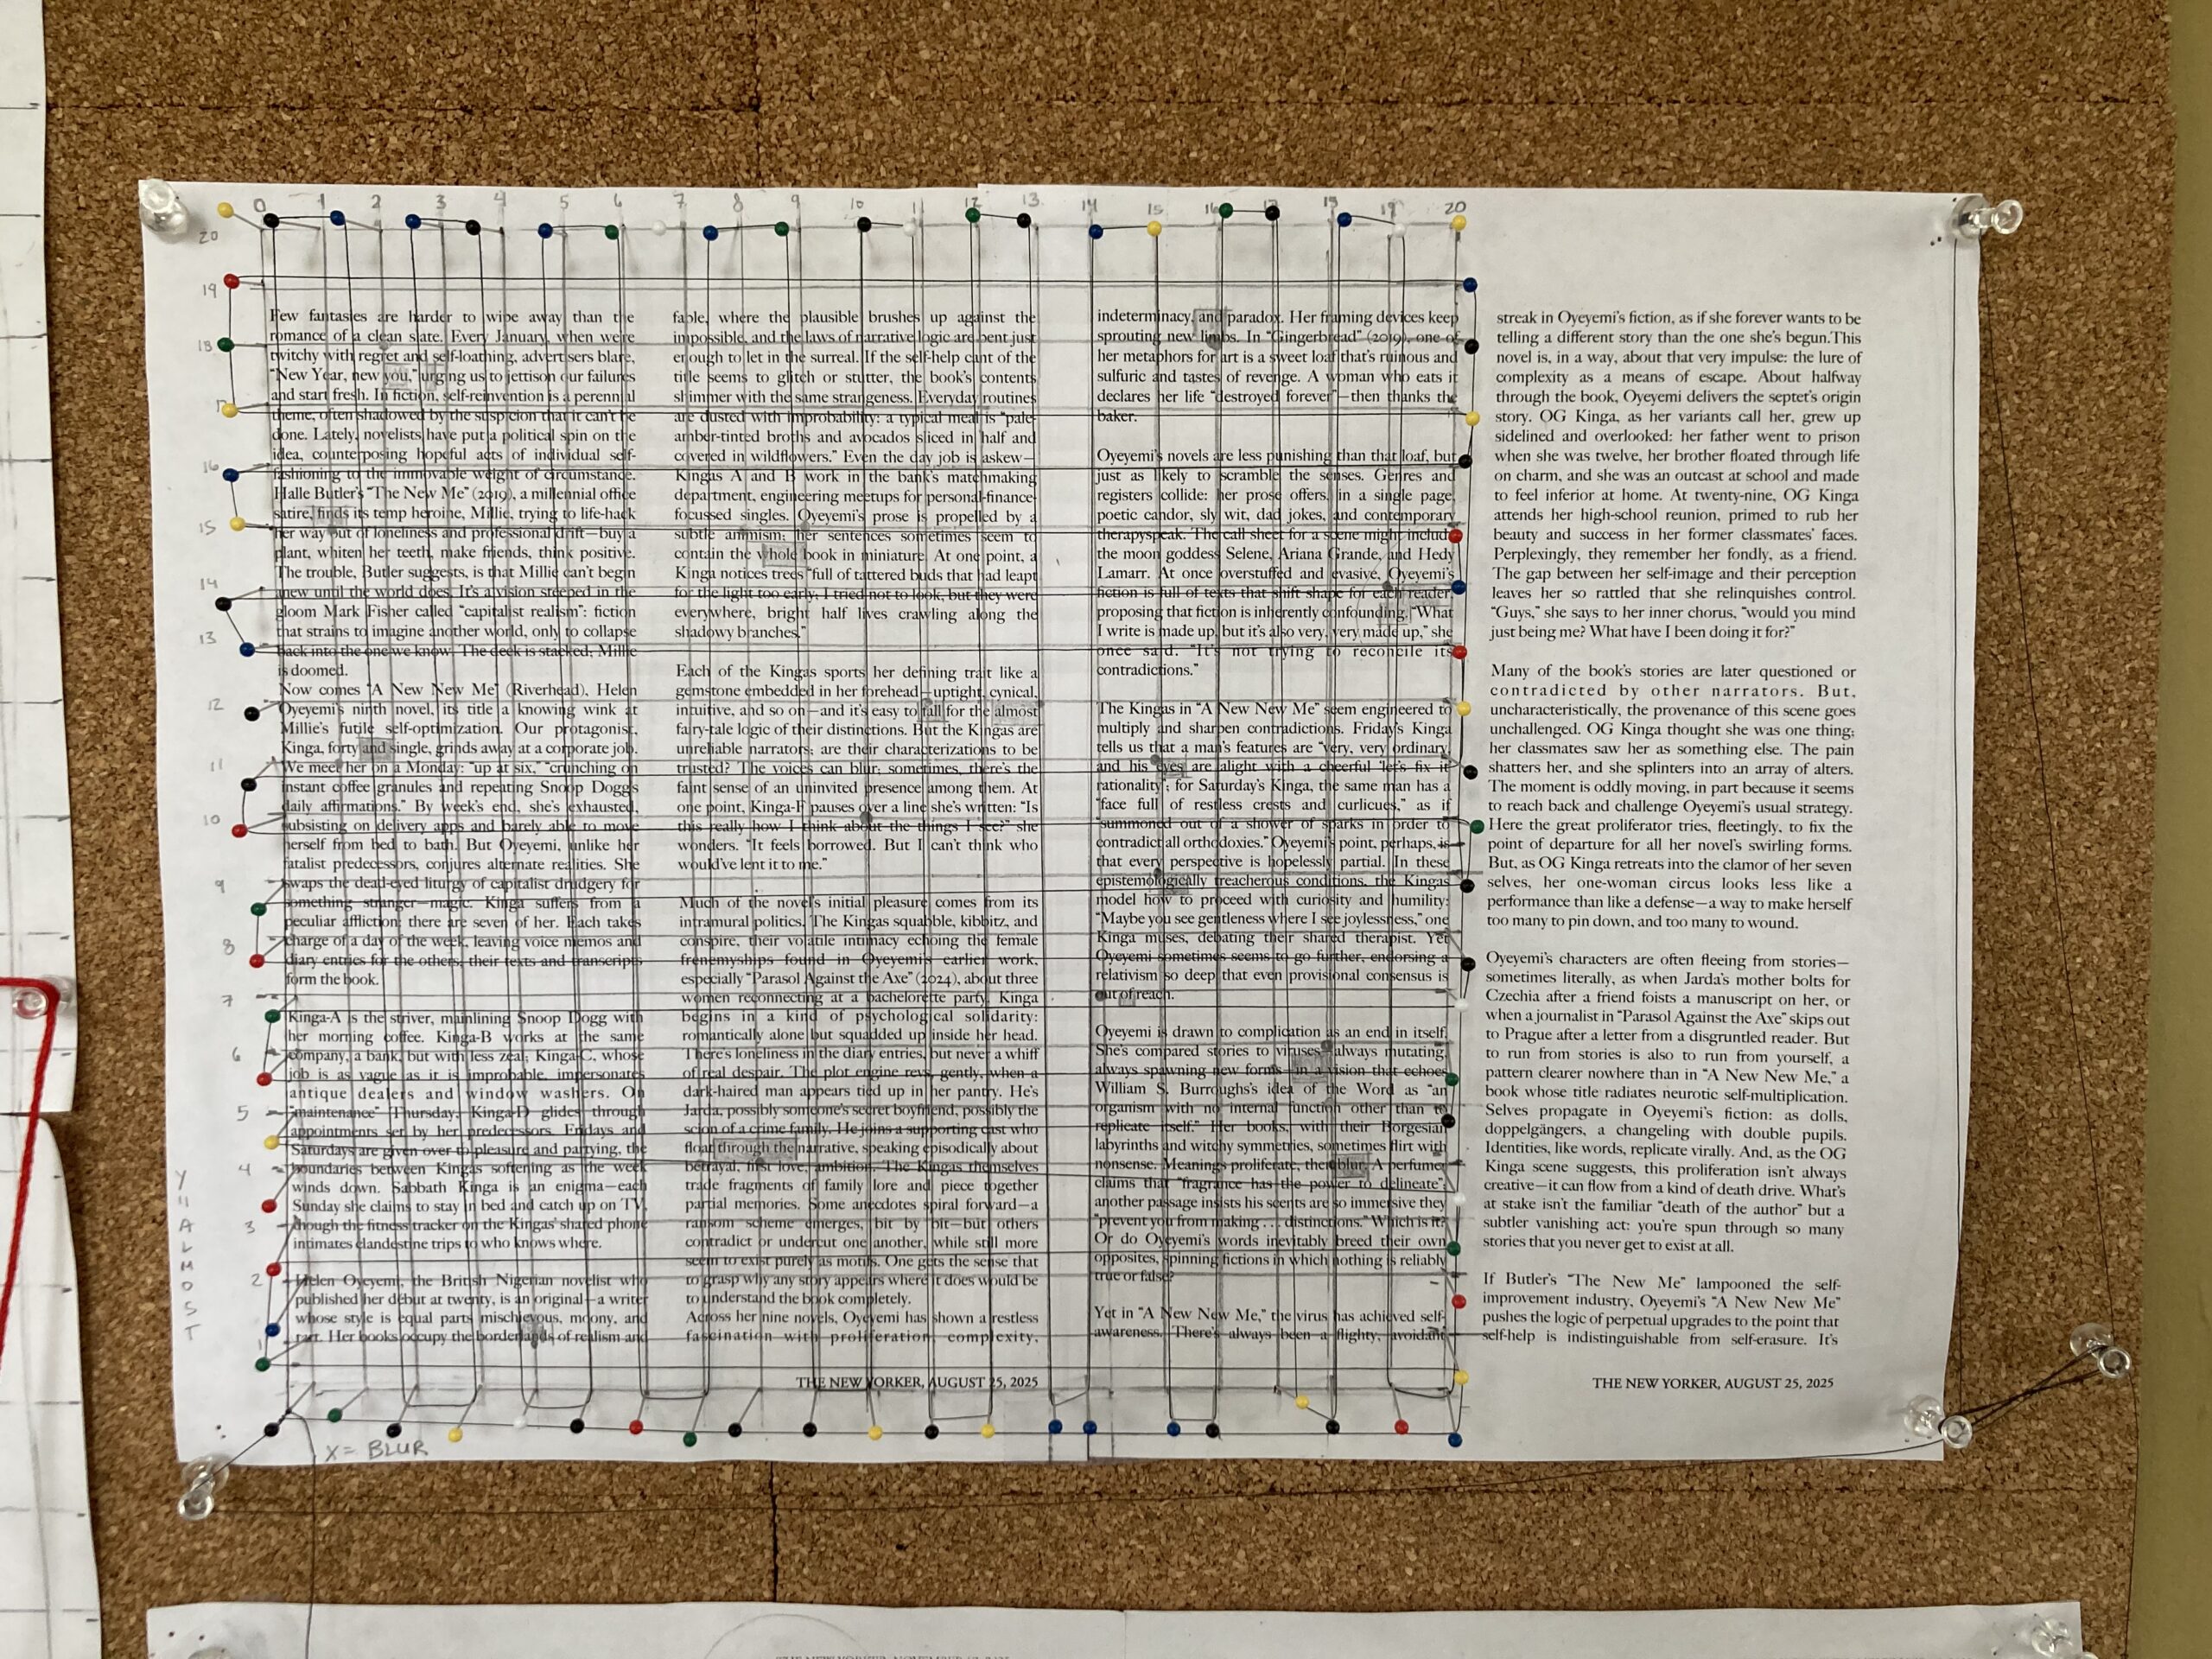 0 1 2 3 4 5 6 7 8 9 10 11 12 13 14 15 16 17 18 19 20
20
19
18
17
16
15
14
13
12
11
10
9
8
7
6
5
4
3
2
1
Y = ALMOST
X = BLUR
Few fantasies are harder to wipe away than the
romance of a clean slate. Every January, when we're
twitchy with regret and self-loathing, advertisers blare,
"New Year, new you," urging us to jettison our failures
and start fresh. In fiction, self-reinvention is a perennial
theme, often shadowed by the suspicion that it can't be
done. Lately, novelists have put a political spin on the
idea, counterposing hopeful acts of individual self-
fashioning to the immovable weight of circumstance.
Halle Butler's "The New Me" (2019), a millennial office
satire, finds its temp heroine, Millie, trying to life-hack
her way out of loneliness and professional drift—buy a
plant, whiten her teeth, make friends, think positive.
The trouble, Butler suggests, is that Millie can't begin
anew until the world does. It's a vision steeped in the
gloom Mark Fisher called "capitalist realism": fiction
that strains to imagine another world, only to collapse
back into the one we know. The deck is stacked; Millie
is doomed.
Now comes "A New New Me" (Riverhead), Helen
Oyeyemi's ninth novel, its title a knowing wink at
Millie's futile self-optimization. Our protagonist,
Kinga, forty and single, grinds away at a corporate job.
We meet her on a Monday: "up at six," "crunching on
instant coffee granules and repeating Snoop Dogg's
daily affirmations." By week's end, she's exhausted,
subsisting on delivery apps and barely able to move
herself from bed to bath. But Oyeyemi, unlike her
fatalist predecessors, conjures alternate realities. She
swaps the dead-eyed liturgy of capitalist drudgery for
something stranger—magic. Kinga suffers from a
peculiar affliction: there are seven of her. Each takes
charge of a day of the week, leaving voice memos and
diary entries for the others; their texts and transcripts
form the book.
Kinga-A is the striver, mainlining Snoop Dogg with
her morning coffee. Kinga-B works at the same
company, a bank, but with less zeal; Kinga-C, whose
job is as vague as it is improbable, impersonates
antique dealers and window washers. On
"maintenance" Thursday, Kinga-D glides through
appointments set by her predecessors. Fridays and
Saturdays are given over to pleasure and partying, the
boundaries between Kingas softening as the week
winds down. Sabbath Kinga is an enigma—each
Sunday she claims to stay in bed and catch up on TV,
though the fitness tracker on the Kingas' shared phone
intimates clandestine trips to who knows where.
Helen Oyeyemi, the British Nigerian novelist who
published her début at twenty, is an original—a writer
whose style is equal parts mischievous, moony, and
tart. Her books occupy the borderlands of realism and
fable, where the plausible brushes up against the
impossible, and the laws of narrative logic are bent just
enough to let in the surreal. If the self-help cant of the
title seems to glitch or stutter, the book's contents
shimmer with the same strangeness. Everyday routines
are dusted with improbability: a typical meal is "pale-
amber-tinted broths and avocados sliced in half and
covered in wildflowers." Even the day job is askew—
Kingas A and B work in the bank's matchmaking
department, engineering meetups for personal-finance-
focussed singles. Oyeyemi's prose is propelled by a
subtle animism; her sentences sometimes seem to
contain the whole book in miniature. At one point, a
Kinga notices trees "full of tattered buds that had leapt
for the light too early; I tried not to look, but they were
everywhere, bright half lives crawling along the
shadowy branches."
Each of the Kingas sports her defining trait like a
gemstone embedded in her forehead—uptight, cynical,
intuitive, and so on—and it's easy to fall for the almost
fairy-tale logic of their distinctions. But the Kingas are
unreliable narrators; are their characterizations to be
trusted? The voices can blur; sometimes, there's the
faint sense of an uninvited presence among them. At
one point, Kinga-F pauses over a line she's written: "Is
this really how I think about the things I see?" she
wonders. "It feels borrowed. But I can't think who
would've lent it to me."
Much of the novel's initial pleasure comes from its
intramural politics. The Kingas squabble, kibbitz, and
conspire, their volatile intimacy echoing the female
frenemyships found in Oyeyemi's earlier work,
especially "Parasol Against the Axe" (2024), about three
women reconnecting at a bachelorette party. Kinga
begins in a kind of psychological solidarity:
romantically alone but squadded up inside her head.
There's loneliness in the diary entries, but never a whiff
of real despair. The plot engine revs, gently, when a
dark-haired man appears tied up in her pantry. He's
Jarda, possibly someone's secret boyfriend, possibly the
scion of a crime family. He joins a supporting cast who
float through the narrative, speaking episodically about
betrayal, first love, ambition. The Kingas themselves
trade fragments of family lore and piece together
partial memories. Some anecdotes spiral forward—a
ransom scheme emerges, bit by bit—but others
contradict or undercut one another, while still more
seem to exist purely as motifs. One gets the sense that
to grasp why any story appears where it does would be
to understand the book completely.
Across her nine novels, Oyeyemi has shown a restless
fascination with proliferation, complexity,
THE NEW YORKER, AUGUST 25, 2025
indeterminacy, and paradox. Her framing devices keep
sprouting new limbs. In "Gingerbread" (2019), one of
her metaphors for art is a sweet loaf that's ruinous and
sulfuric and tastes of revenge. A woman who eats it
declares her life "destroyed forever"—then thanks the
baker.
Oyeyemi's novels are less punishing than that loaf, but
just as likely to scramble the senses. Genres and
registers collide: her prose offers, in a single page,
poetic candor, sly wit, dad jokes, and contemporary
therapyspeak. The call sheet for a scene might include
the moon goddess Selene, Ariana Grande, and Hedy
Lamarr. At once overstuffed and evasive, Oyeyemi's
fiction is full of texts that shift shape for each reader,
proposing that fiction is inherently confounding. "What
I write is made up, but it's also very, very made up," she
once said. "It's not trying to reconcile its
contradictions."
The Kingas in "A New New Me" seem engineered to
multiply and sharpen contradictions. Friday's Kinga
tells us that a man's features are "very, very ordinary,
and his eyes are alight with a cheerful 'let's fix it'
rationality"; for Saturday's Kinga, the same man has a
"face full of restless crests and curlicues," as if
"summoned out of a shower of sparks in order to
contradict all orthodoxies." Oyeyemi's point, perhaps, is
that every perspective is hopelessly partial. In these
epistemologically treacherous conditions, the Kingas
model how to proceed with curiosity and humility:
"Maybe you see gentleness where I see joylessness," one
Kinga muses, debating their shared therapist. Yet
Oyeyemi sometimes seems to go further, endorsing a
relativism so deep that even provisional consensus is
out of reach.
Oyeyemi is drawn to complication as an end in itself.
She's compared stories to viruses—always mutating,
always spawning new forms—in a vision that echoes
William S. Burroughs's idea of the Word as "an
organism with no internal function other than to
replicate itself." Her books, with their Borgesian
labyrinths and witchy symmetries, sometimes flirt with
nonsense. Meanings proliferate, then blur. A perfumer
claims that "fragrance has the power to delineate";
another passage insists his scents are so immersive they
"prevent you from making . . . distinctions." Which is it?
Or do Oyeyemi's words inevitably breed their own
opposites, spinning fictions in which nothing is reliably
true or false?
Yet in "A New New Me," the virus has achieved self-
awareness. "There's always been a flighty, avoidant
streak in Oyeyemi's fiction, as if she forever wants to be
telling a different story than the one she's begun.This
novel is, in a way, about that very impulse: the lure of
complexity as a means of escape. About halfway
through the book, Oyeyemi delivers the septet's origin
story. OG Kinga, as her variants call her, grew up
sidelined and overlooked: her father went to prison
when she was twelve, her brother floated through life
on charm, and she was an outcast at school and made
to feel inferior at home. At twenty-nine, OG Kinga
attends her high-school reunion, primed to rub her
beauty and success in her former classmates' faces.
Perplexingly, they remember her fondly, as a friend.
The gap between her self-image and their perception
leaves her so rattled that she relinquishes control.
"Guys," she says to her inner chorus, "would you mind
just being me? What have I been doing it for?"
Many of the book's stories are later questioned or
contradicted by other narrators. But,
uncharacteristically, the provenance of this scene goes
unchallenged. OG Kinga thought she was one thing;
her classmates saw her as something else. The pain
shatters her, and she splinters into an array of alters.
The moment is oddly moving, in part because it seems
to reach back and challenge Oyeyemi's usual strategy.
Here the great proliferator tries, fleetingly, to fix the
point of departure for all her novel's swirling forms.
But, as OG Kinga retreats into the clamor of her seven
selves, her one-woman circus looks less like a
performance than like a defense—a way to make herself
too many to pin down, and too many to wound.
Oyeyemi's characters are often fleeing from stories—
sometimes literally, as when Jarda's mother bolts for
Czechia after a friend foists a manuscript on her, or
when a journalist in "Parasol Against the Axe" skips out
to Prague after a letter from a disgruntled reader. But
to run from stories is also to run from yourself, a
pattern clearer nowhere than in "A New New Me," a
book whose title radiates neurotic self-multiplication.
Selves propagate in Oyeyemi's fiction: as dolls,
doppelgängers, a changeling with double pupils.
Identities, like words, replicate virally. And, as the OG
Kinga scene suggests, this proliferation isn't always
creative—it can flow from a kind of death drive. What's
at stake isn't the familiar "death of the author" but a
subtler vanishing act: you're spun through so many
stories that you never get to exist at all.
If Butler's "The New Me" lampooned the self-
improvement industry, Oyeyemi's "A New New Me"
pushes the logic of perpetual upgrades to the point that
self-help is indistinguishable from self-erasure. It's
THE NEW YORKER, AUGUST 25, 2025